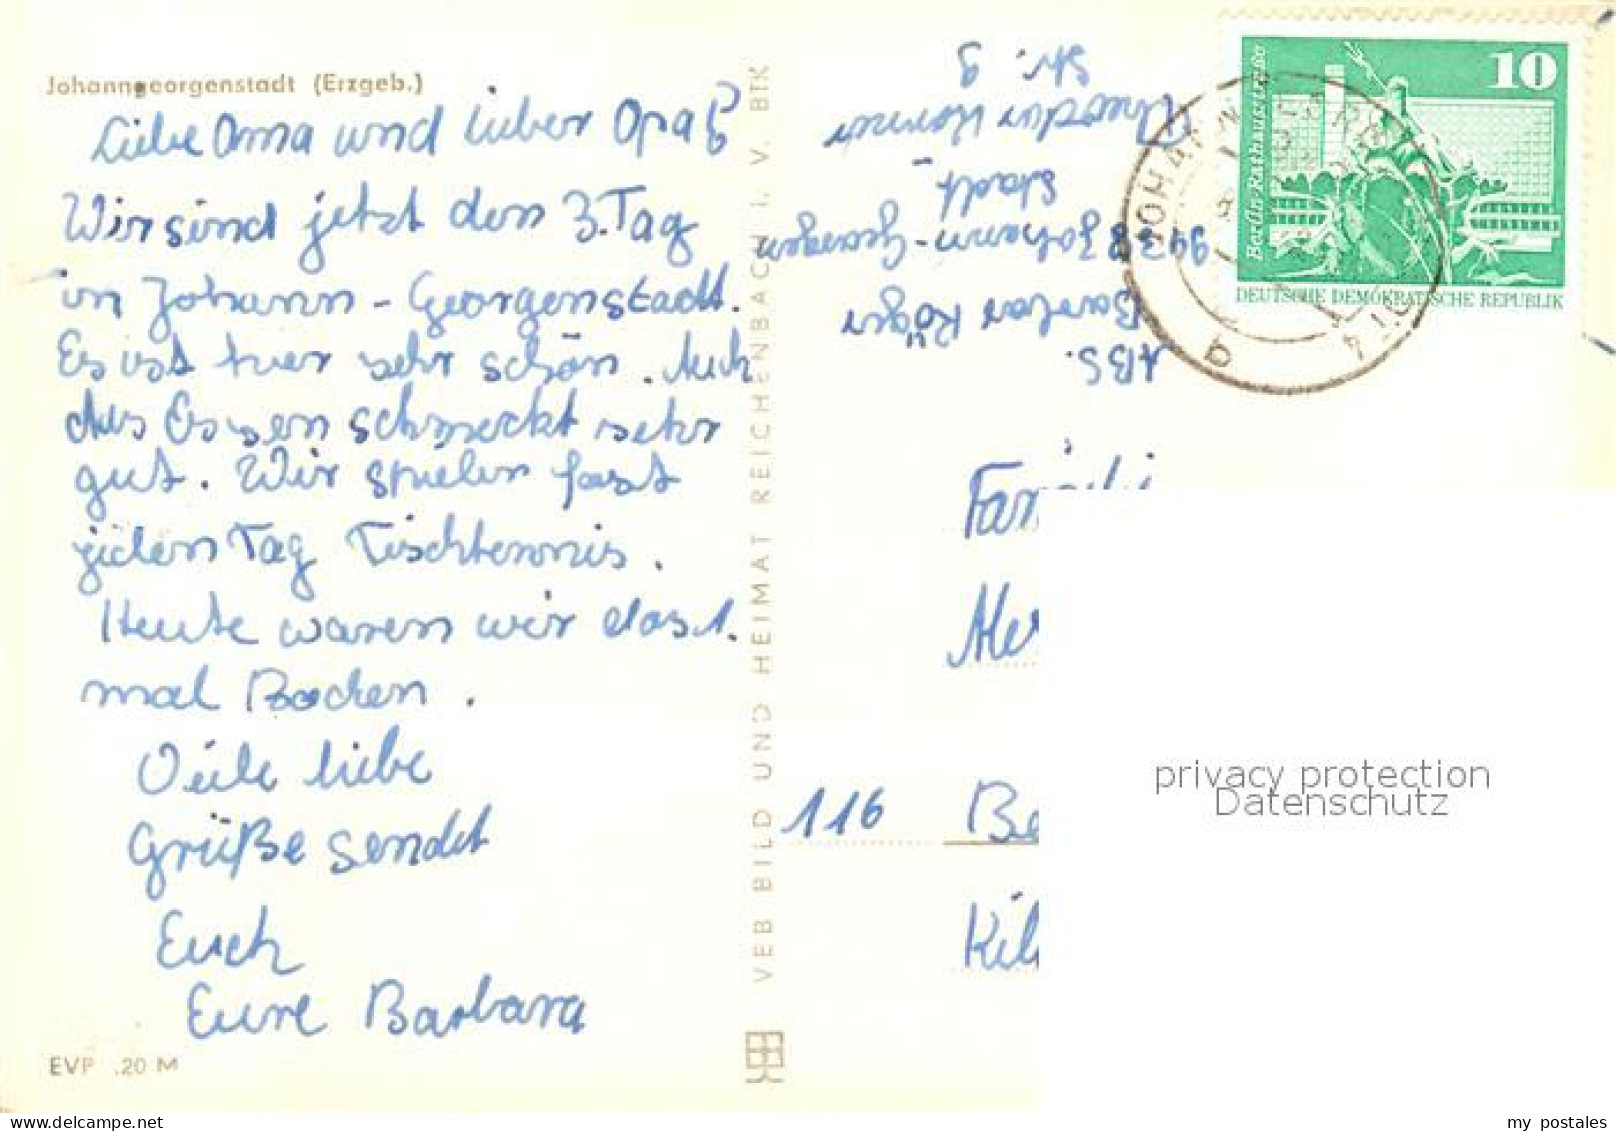 Johanngeorgenstadt (Erzgeb.)
Liebe Oma und lieber Opa!
Wir sind jetzt den 3. Tag
in Johann-Georgenstadt.
Es ist hier sehr schön. Auch
das Essen schmeckt sehr
gut. Wir spielen fast
jeden Tag Tischtennis.
Heute waren wir das 1.
mal Baden.
Viele liebe
Grüße sendet
Euch
Eure Barbara
EVP .20 M
VEB BILD UND HEIMAT REICHENBACH I. V. BTK
ABS.
Barbar Röger
9438 Johann-Georgen
stadt
Theodor Körner
Str. 3
10
Berlin Rathausstraße
DEUTSCHE DEMOKRATISCHE REPUBLIK
Fam
116 Be
Kil
privacy protection
Datenschutz
www.delcampe.net
my_postales